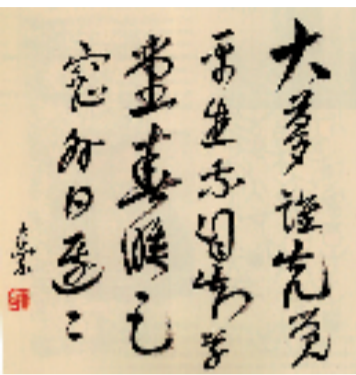 大夢誰先覺
平生我自知草
堂春睡足
窗外日遲々